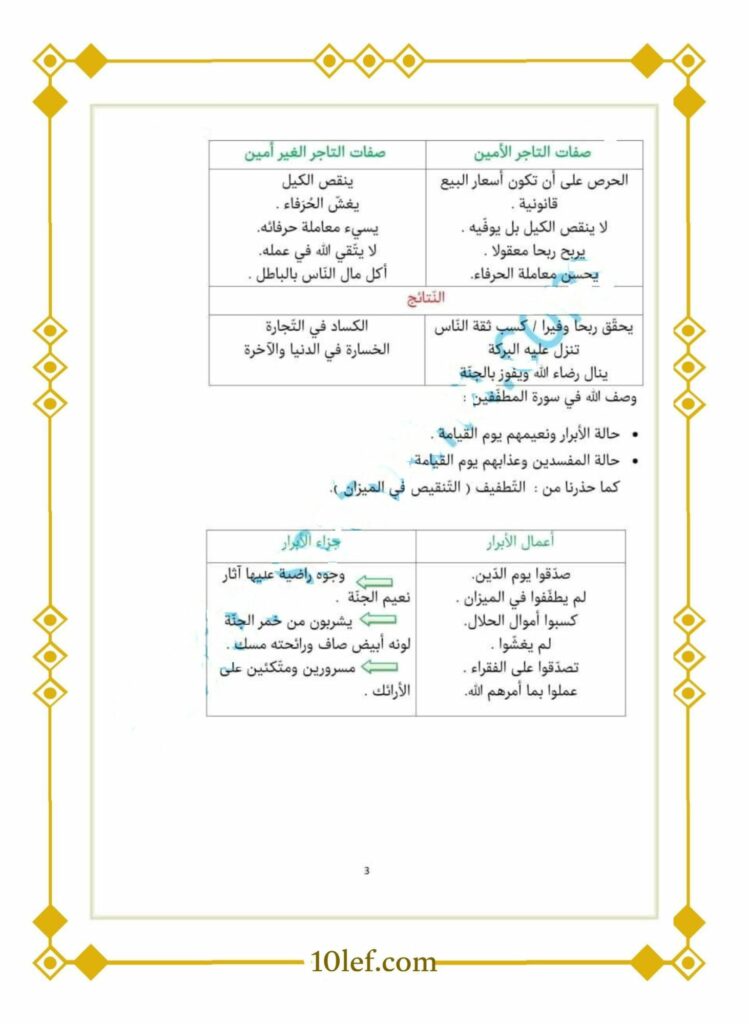 صفات التاجر الأمين
صفات التاجر الغير أمين
الحرص على أن تكون أسعار البيع
قانونية .
لا ينقص الكيل بل يوفّيه .
يربح ربحا معقولا .
يحسن معاملة الحرفاء.
ينقص الكيل
يغشّ الحُرَفاء .
يسيء معاملة حرفائه.
لا يتّقي الله في عمله.
أكل مال النّاس بالباطل .
النّتائج
يحقّق ربحا وفيرا / كسب ثقة النّاس
تنزل عليه البركة
ينال رضاء الله ويفوز بالجنّة
الكساد في التّجارة
الخسارة في الدنيا والآخرة
وصف الله في سورة المطفّفين :
• حالة الأبرار ونعيمهم يوم القيامة .
• حالة المفسدين وعذابهم يوم القيامة
كما حذرنا من : التّطفيف ( التّنقيص في الميزان ).
أعمال الأبرار
جزاء الأبرار
صدّقوا يوم الدّين.
لم يطفّفوا في الميزان .
كسبوا أموال الحلال.
لم يغشّوا .
تصدّقوا على الفقراء .
عملوا بما أمرهم الله.
وجوه راضية عليها آثار
نعيم الجنّة .
يشربون من خمر الجنّة
لونه أبيض صاف ورائحته مسك .
مسرورين ومتّكئين على
الأرائك .
3
10lef.com